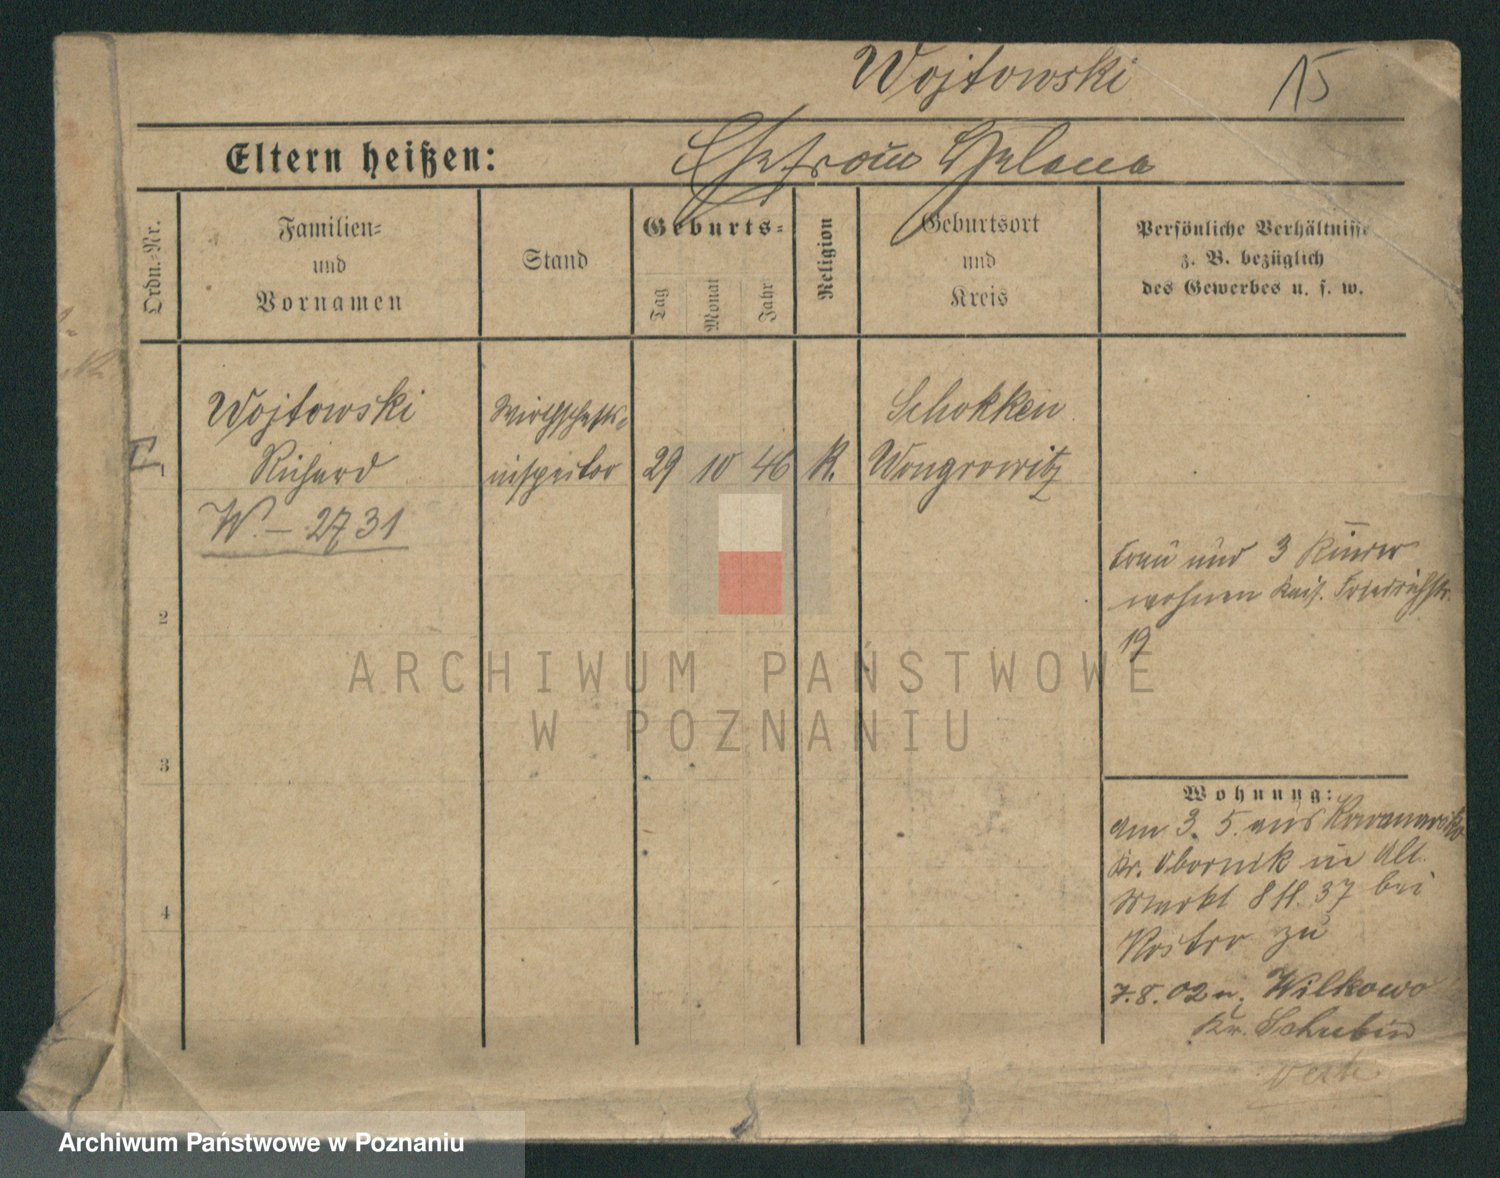 Wojtowski 15
Eltern heißen: Ehefrau Helena
Ordn.-Nr.
Familien-
und
Vornamen
Stand
Geburts-
Tag
Monat
Jahr
Religion
Geburtsort
und
Kreis
Persönliche Verhältnisse
z. B. bezüglich
des Gewerbes u. s. w.
1
Wojtowski
Richard
W. – 2731
Wirthschafts-
inspector
29 10 46 K.
Schokken
Wongrowitz
Frau und 3 Kinder
wohnen Kais. Friedrichstr.
19
2
3
4
Wohnung:
am 3. 5. aus
Kr. Obornik in Alt.
Markt 37 bei
zu
7.8.02 n. Wilkowo
Kr. Schubin
ARCHIWUM PAŃSTWOWE
W POZNANIU
Archiwum Państwowe w Poznaniu